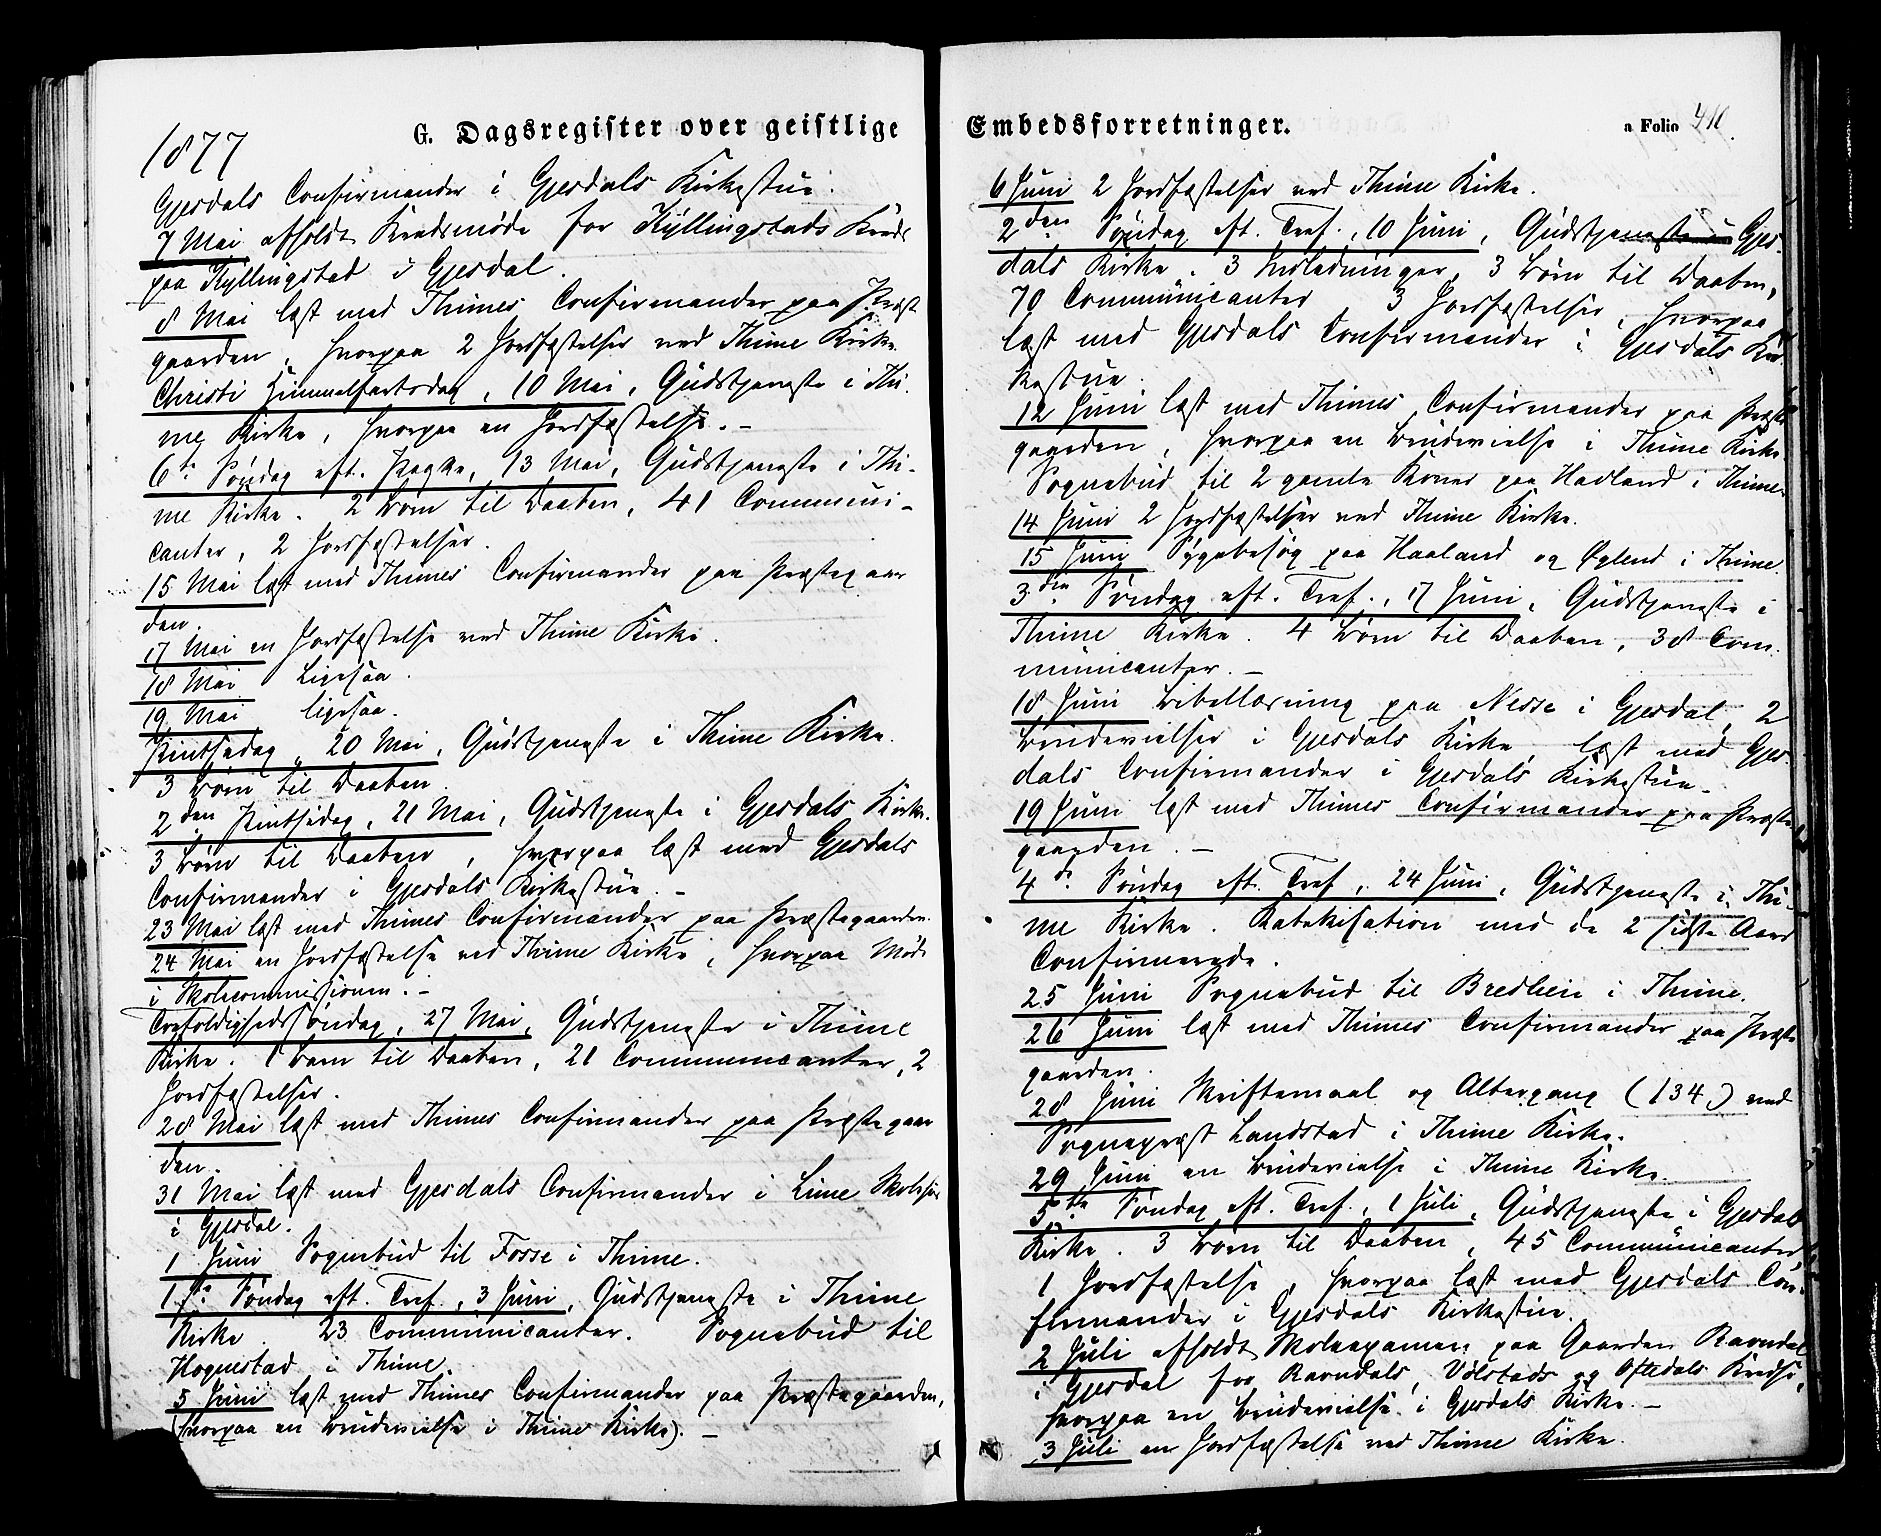 1877
G. Dagsregister over geistlige
Gjesdals Confirmander i Gjesdals Kirkestue.
7 Mai afholdt Kredsmøde for Kyllingstads Kreds
paa Kyllingstad i Gjesdal.
8 Mai læst med Thimes Confirmander paa Præste
gaarden, hvorpaa 2 Jordfæstelser ved Thime Kirke.
Christi Himmelfartsdag, 10 Mai, Gudstjeneste i Thi-
me Kirke, hvorpaa en Jordfæstelse. –
6te Søndag eft. Paaske, 13 Mai, Gudstjeneste i Thi-
me Kirke. 2 Børn til Daaben, 41 Communi-
canter, 2 Jordfæstelser.
15 Mai læst med Thimes Confirmander paa Præstegaar
den.
17 Mai en Jordfæstelse ved Thime Kirke.
18 Mai Ligesaa.
19 Mai ligesaa.
Pintsedag, 20 Mai, Gudstjeneste i Thime Kirke.
3 Børn til Daaben
2den Pintsedag, 21 Mai, Gudstjeneste i Gjesdals Kirke.
3 Børn til Daaben, hvorpaa læst med Gjesdals
Confirmander i Gjesdals Kirkestue. –
23 Mai læst med Thimes Confirmander paa Præstegaarden.
24 Mai en Jordfæstelse ved Thime Kirke, hvorpaa Møde
i Skolecommissionen. –
Trefoldighedssøndag, 27 Mai, Gudstjeneste i Thime
Kirke. 1 Barn til Daaben, 21 Communicanter, 2
Jordfæstelser.
28 Mai læst med Thimes Confirmander paa Præstegaar
den.
31 Mai læst med Gjesdals Confirmander i Lime Skolehus
i Gjesdal.
1 Juni Sognebud til Fosse i Thime.
1ste Søndag eft. Tref., 3 Juni, Gudstjeneste i Thime
Kirke. 23 Communicanter. Sognebud til
Hognestad i Thime.
5 Juni læst med Thimes Confirmander paa Præstegaarden,
(hvorpaa en Brudevielse i Thime Kirke). –
Embedsforretninger.
a Folio 410.
6 Juni 2 Jordfæstelser ved Thime Kirke.
2den Søndag eft. Tref., 10 Juni, Gudstjeneste i Gjes-
dals Kirke. 3 Indledninger, 3 Børn til Daaben,
70 Communicanter, 3 Jordfæstelser, hvorpaa
læst med Gjesdals Confirmander i Gjesdals Kir-
kestue.
12 Juni læst med Thimes Confirmander paa Præste
gaarden, hvorpaa en Brudevielse i Thime Kirke
Sognebud til 2 gamle Koner paa Hadland i Thime.
14 Juni 2 Jordfæstelser ved Thime Kirke.
15 Juni Sygebesøg paa Haaland og Øglend i Thime.
3die Søndag eft. Tref., 17 Juni, Gudstjeneste i
Thime Kirke. 4 Børn til Daaben, 38 Com-
municanter. –
18 Juni Bibellæsning paa Nesse i Gjesdal, 2
Brudevielser i Gjesdals Kirke, læst med Gjes
dals Confirmander i Gjesdals Kirkestue.
19 Juni læst med Thimes Confirmander paa Præste
gaarden. –
4de Søndag eft. Tref., 24 Juni, Gudstjeneste i Thi-
me Kirke. Katekisation med de 2 sidste Aars
Confirmerede.
25 Juni Sognebud til Bredlien i Thime.
26 Juni læst med Thimes Confirmander paa Præste
gaarden.
28 Juni Skriftemaal og Altergang (134) ved
Sognepræst Landstad i Thime Kirke.
29 Juni en Brudevielse i Thime Kirke.
5te Søndag eft. Tref., 1 Juli, Gudstjeneste i Gjesdals
Kirke. 3 Børn til Daaben, 45 Communicanter,
1 Jordfæstelse, hvorpaa læst med Gjesdals Con-
firmander i Gjesdals Kirkestue.
2 Juli afholdt Skoleexamen paa Gaarden Ravndal
i Gjesdal for Ravndals, Ulstads og Oftedals Kredse,
hvorpaa en Brudevielse i Gjesdals Kirke. –
3 Juli en Jordfæstelse ved Thime Kirke.